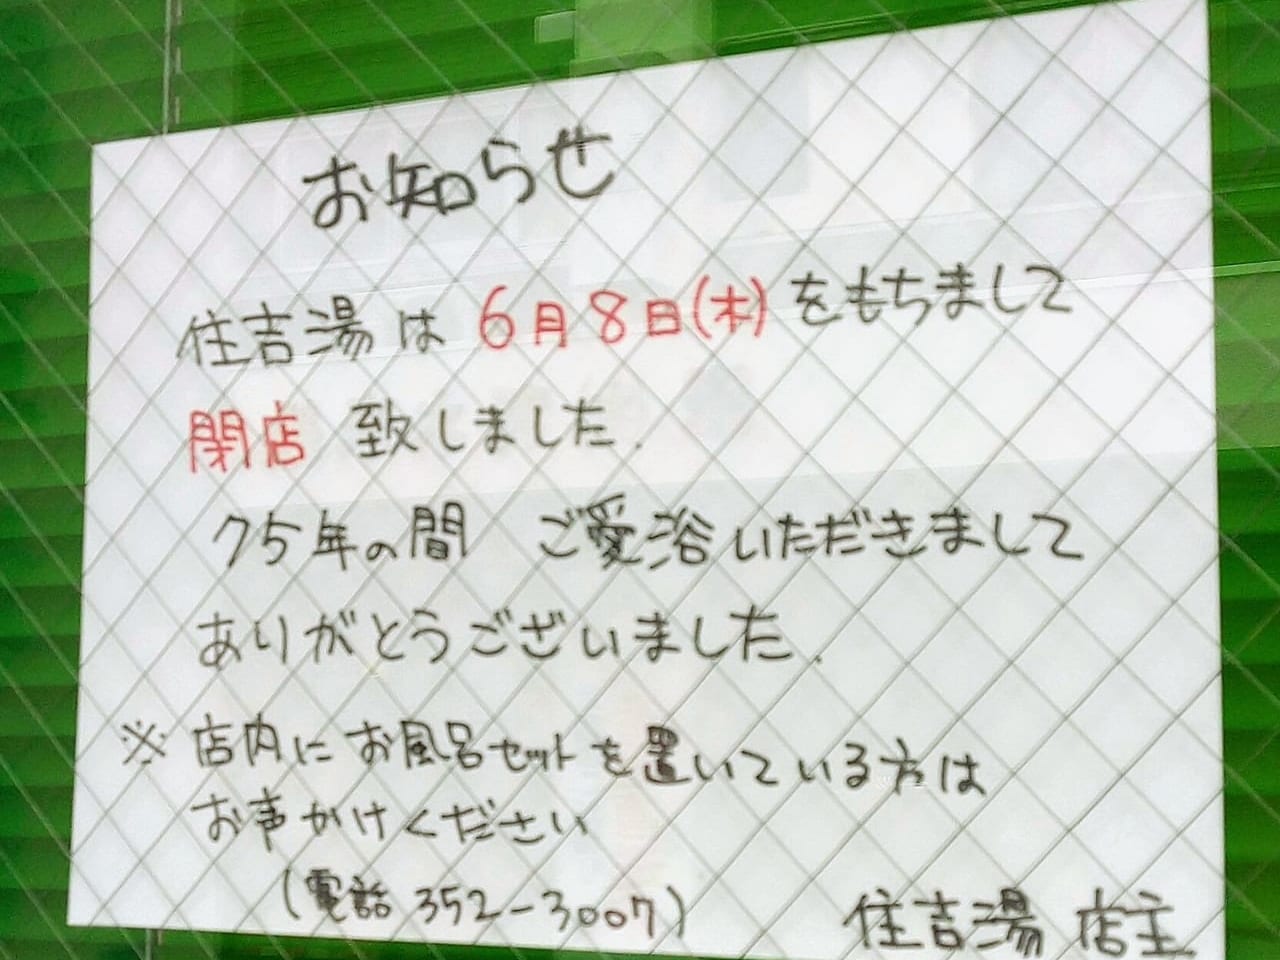 お知らせ
住吉湯は 6月8日(木)をもちまして
閉店 致しました.
75年の間 ご愛浴いただきまして
ありがとうございました.
※ 店内にお風呂セットを置いている方は
お声かけください
(電話 352-3007)
住吉湯 店主